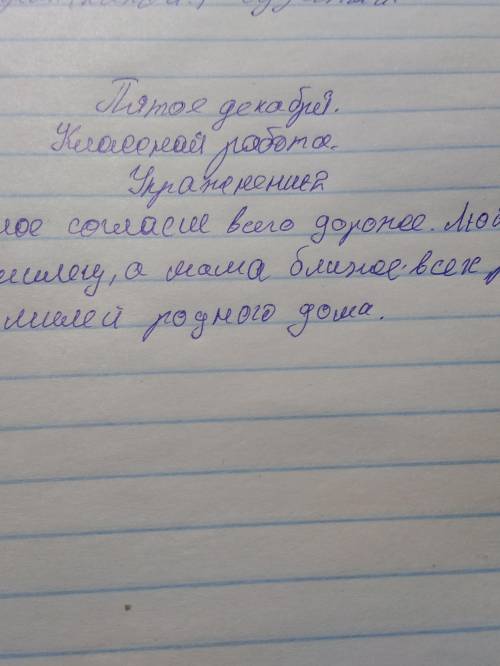 Пятое декабря.
Классная работа.
Упражнение
ное согласие всего дороже. Люб
милому, а мама ближе всех
милей родного дома.